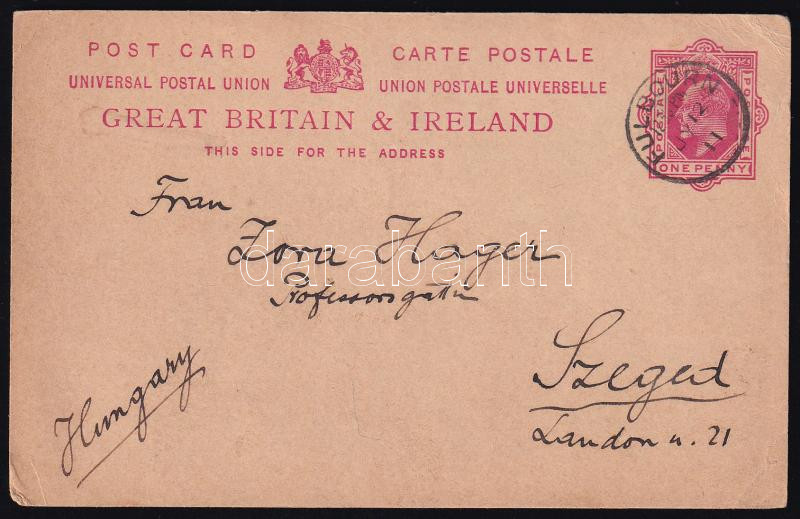 POST CARD CARTE POSTALE
UNIVERSAL POSTAL UNION UNION POSTALE UNIVERSELLE
GREAT BRITAIN & IRELAND
THIS SIDE FOR THE ADDRESS
POSTAGE
ONE PENNY
FULBOURN
JY 12
11
Frau
Zora Hager
Professorsgattin
Szeged
Landon u. 21
Hungary
darabanth